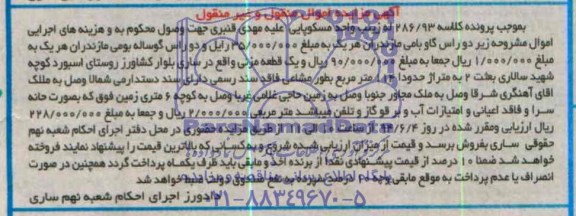 آگهی مزایده اموال منقول و غیر منقول
بموجب پرونده کلاسه ۲۸۶/۹۳ له زینب واحد مسکوپایی علیه مهدی قنبری جهت وصول محکوم به و هزینه های اجرایی
اموال مشروحه زیر دو راس گاو بامی مازندران هر یک به مبلغ ۳۵/۰۰۰/۰۰۰ رایل و دو راس گوساله بومی مازندران هر یک به
مبلغ ۱۰/۰۰۰/۰۰۰ ریال جمعا به مبلغ ۹۰/۰۰۰/۰۰۰ ریال و یک قطعه مزنی واقع در ساری بلوار کشاورز روستای اسپورد کوچه
شهید سالاری بعثت ۲ به متراژ حدود ۱۱۴ متر مربع بطور مشاعی فاقد سند رسمی دارای سند دستدارمی شمالا وصل به ملک
آقای آهنگری شرقا وصل به ملک مجاور جنوبا وصل به زمین حاجی غلامی غربا وصل به کوچه ۶ متری زمین فوق که بصورت خانه
سرا و فاقد اعیانی و امتیازات آب و برق و گاز و تلفن میباشد متر مربعی ۲/۰۰۰/۰۰۰ ریال و جمعا به مبلغ ۲۲۸/۰۰۰/۰۰۰
ریال ارزیابی ومقرر شده در روز ۹۴/۶/۴ از طریق مزایده حضوری در محل دفتر اجرای احکام شعبه نهم
حقوقی ساری بفروش برسد و قیمت از میزان ارزیابی شده شروع و به کسانی که بالاترین قیمت را پیشنهاد نمایند فروخته
خواهد شد ضمنا ۱۰ درصد از قیمت پیشنهادی نقدا از برنده اخذ و مابقی باید ظرف یکماه پرداخت گردد همچنین در صورت
انصراف یا عدم پرداخت به موقع مابقی وجه ۱۰ درصد سپرده به نفع صندوق دولت ضبط خواهد شد
دادورز اجرای احکام شعبه نهم ساری
۰۲۱-۸۸۳۴۹۶۷۰-۵